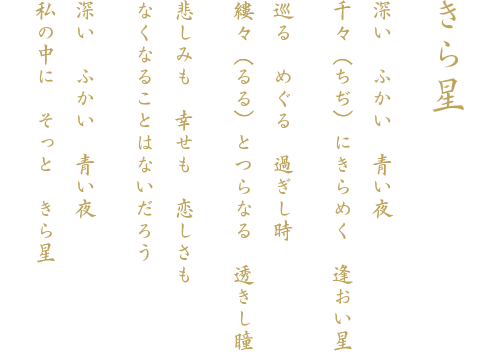 きら星
深い　ふかい　青い夜
千々（ちぢ）にきらめく　逢おい星
巡る　めぐる　過ぎし時
縷々（るる）とつらなる　透きし瞳
悲しみも　幸せも　恋しさも
なくなることはないだろう
深い　ふかい　青い夜
私の中に　そっと　きら星